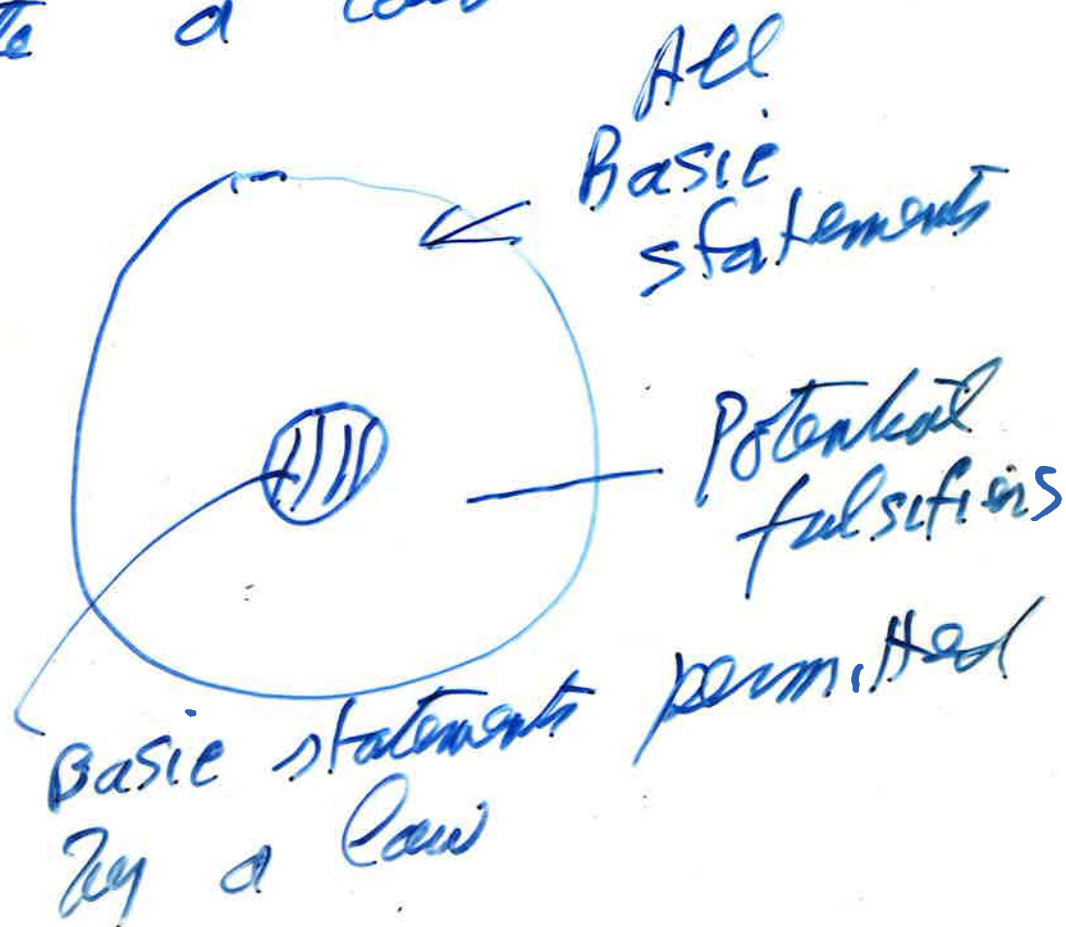 a law
All
Basic
statements
Potential
falsifiers
Basic statements permitted
by a law